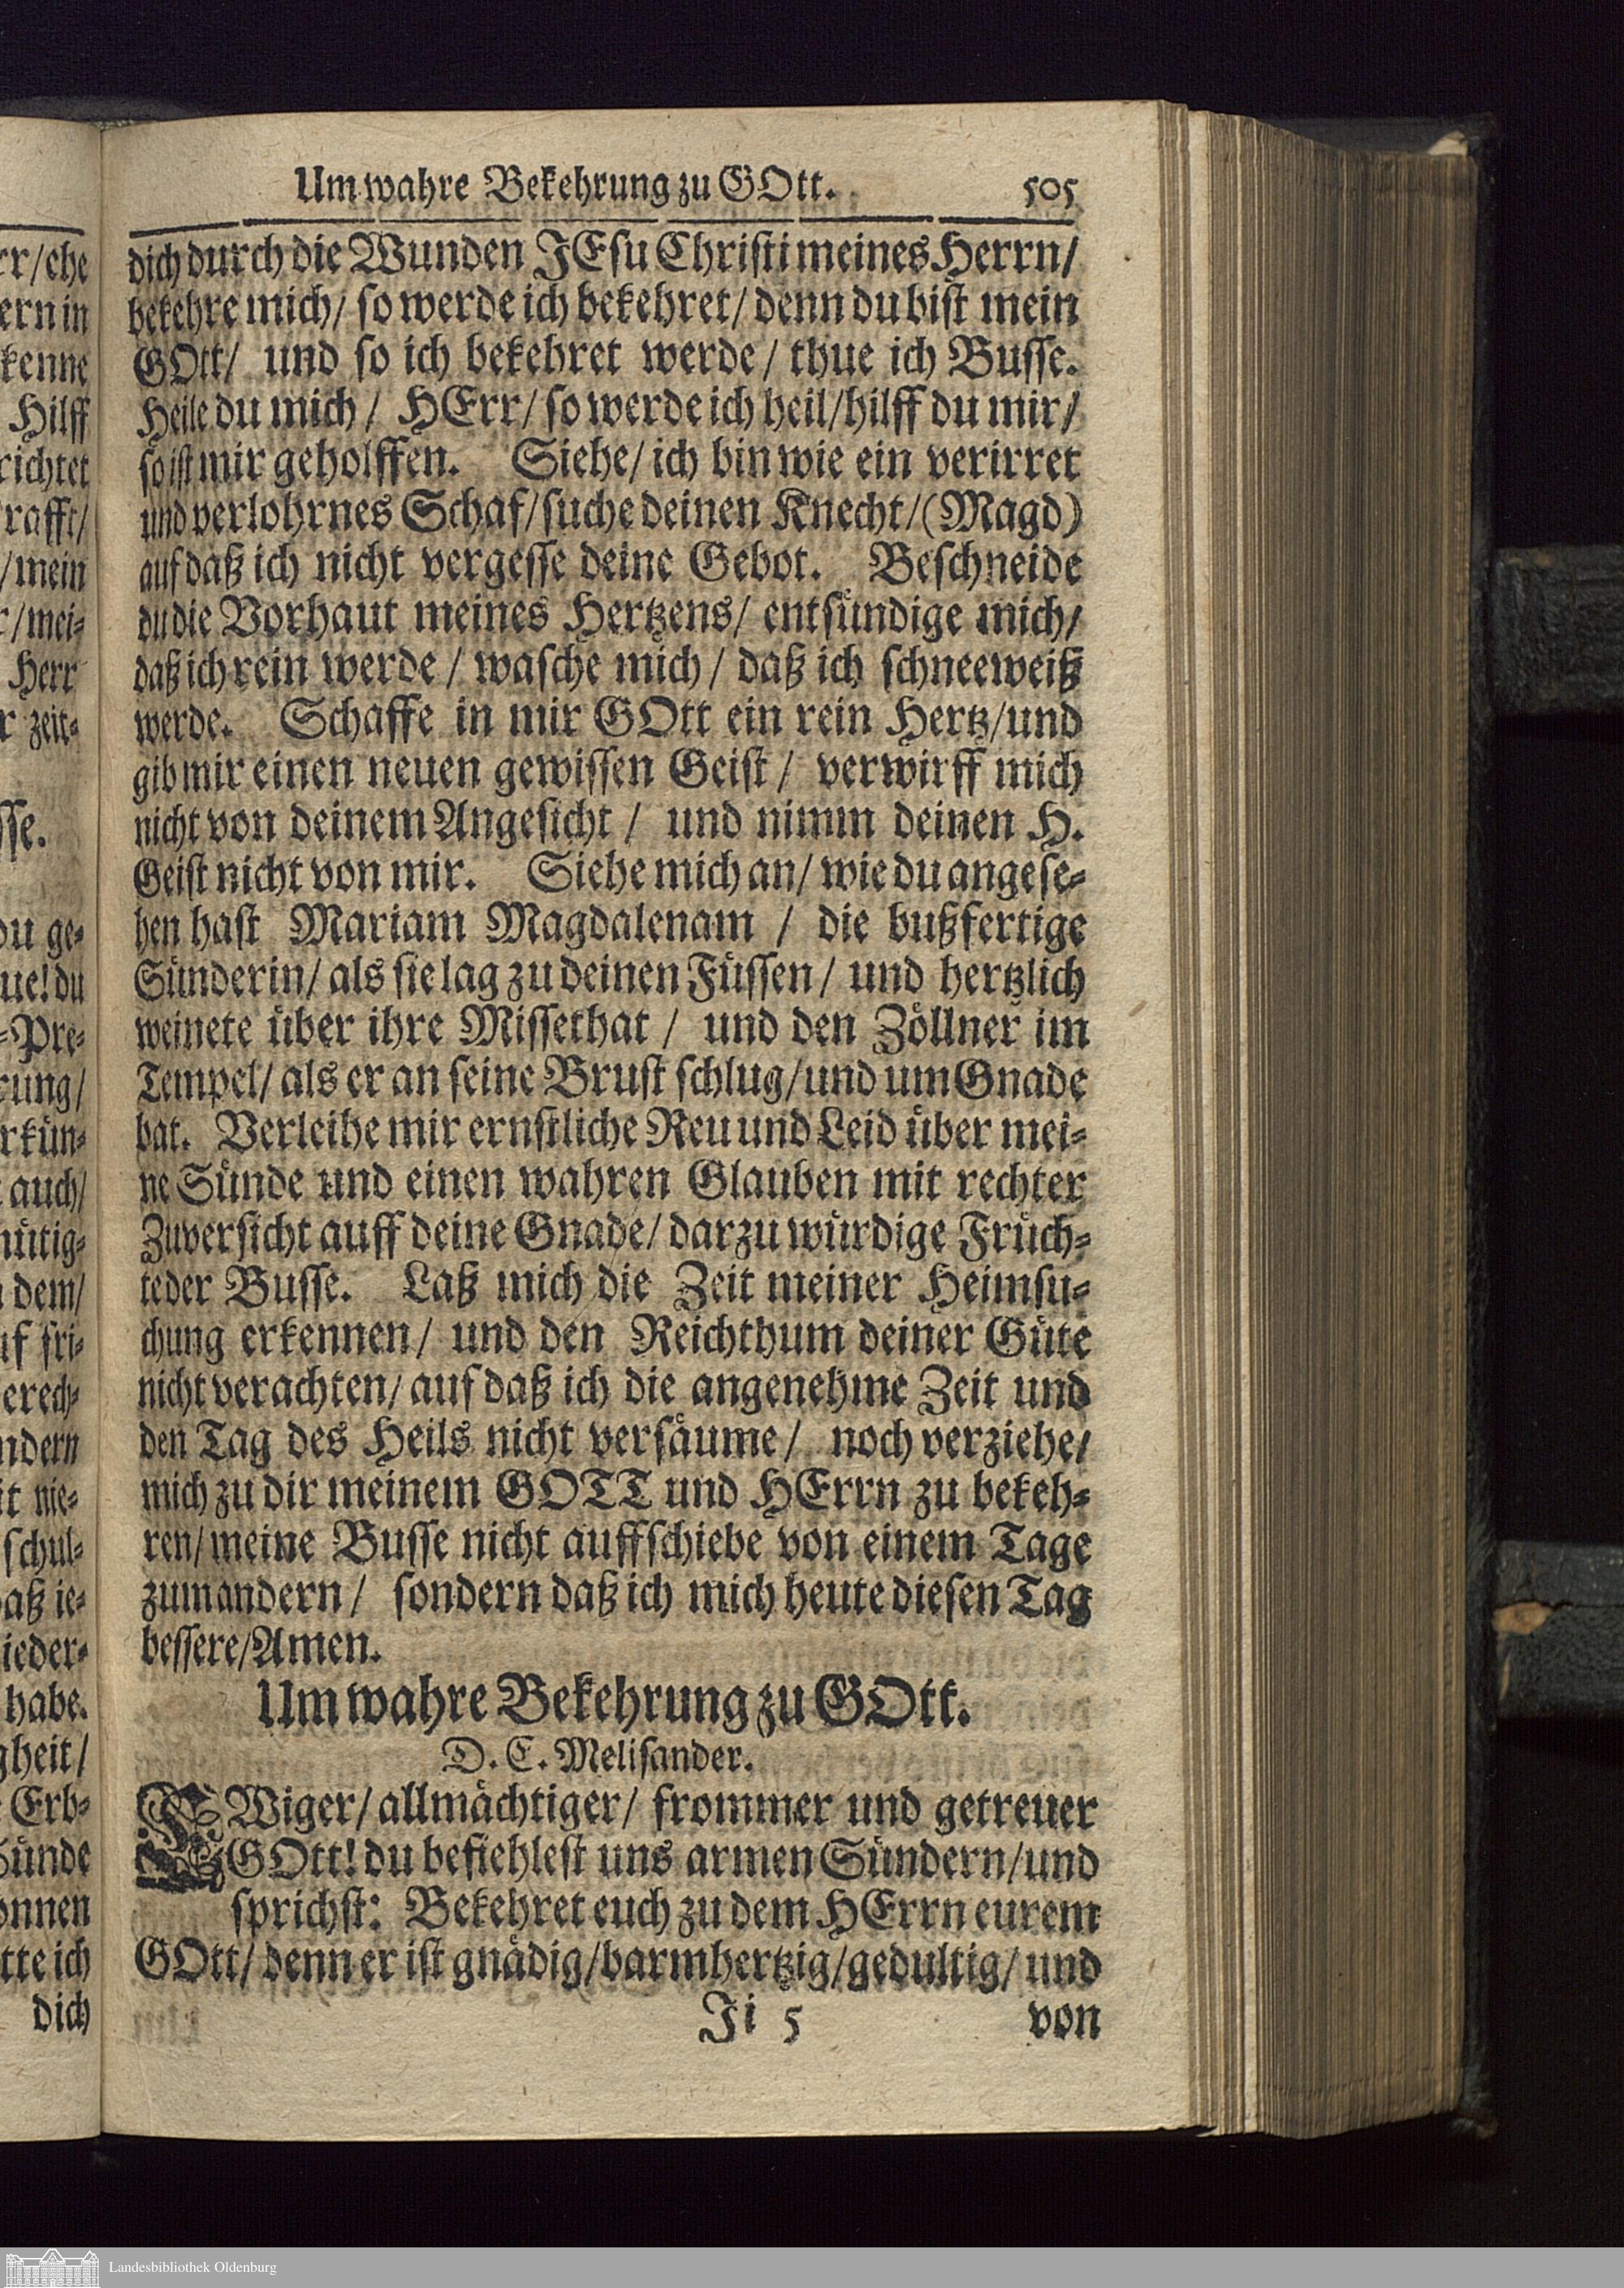 Um wahre Bekehrung zu GOtt. 505
dich durch die Wunden JEsu Christi meines Herrn/
bekehre mich/ so werde ich bekehret/ denn du bist mein
GOtt/ und so ich bekehret werde/ thue ich Busse.
Heile du mich/ HErr/ so werde ich heil/ hilff du mir/
so ist mir geholffen. Siehe/ ich bin wie ein verirret
und verlohrnes Schaf/ suche deinen Knecht/ (Magd)
auf daß ich nicht vergesse deine Gebot. Beschneide
du die Vorhaut meines Hertzens/ entsündige mich/
daß ich rein werde/ wasche mich/ daß ich schneeweiß
werde. Schaffe in mir GOtt ein rein Hertz/ und
gib mir einen neuen gewissen Geist/ verwirff mich
nicht von deinem Angesicht/ und nimm deinen H.
Geist nicht von mir. Siehe mich an/ wie du angese-
hen hast Mariam Magdalenam/ die bußfertige
Sünderin/ als sie lag zu deinen Füssen/ und hertzlich
weinete über ihre Missethat/ und den Zöllner im
Tempel/ als er an seine Brust schlug/ und um Gnade
bat. Verleihe mir ernstliche Reu und Leid über mei-
ne Sünde und einen wahren Glauben mit rechter
Zuversicht auff deine Gnade/ darzu würdige Früch-
te der Busse. Laß mich die Zeit meiner Heimsu-
chung erkennen/ und den Reichthum deiner Güte
nicht verachten/ auf daß ich die angenehme Zeit und
den Tag des Heils nicht versäume/ noch verziehe/
mich zu dir meinem GOTT und HErrn zu bekeh-
ren/ meine Busse nicht auffschiebe von einem Tage
zum andern/ sondern daß ich mich heute diesen Tag
bessere/ Amen.
Um wahre Bekehrung zu GOtt.
D. C. Melisander.
EWiger/ allmächtiger/ frommer und getreuer
GOtt! du befiehlest uns armen Sündern/ und
sprichst: Bekehret euch zu dem HErrn eurem
GOtt/ denn er ist gnädig/ barmhertzig/ gedultig/ und
Ji 5 von
Landesbibliothek Oldenburg